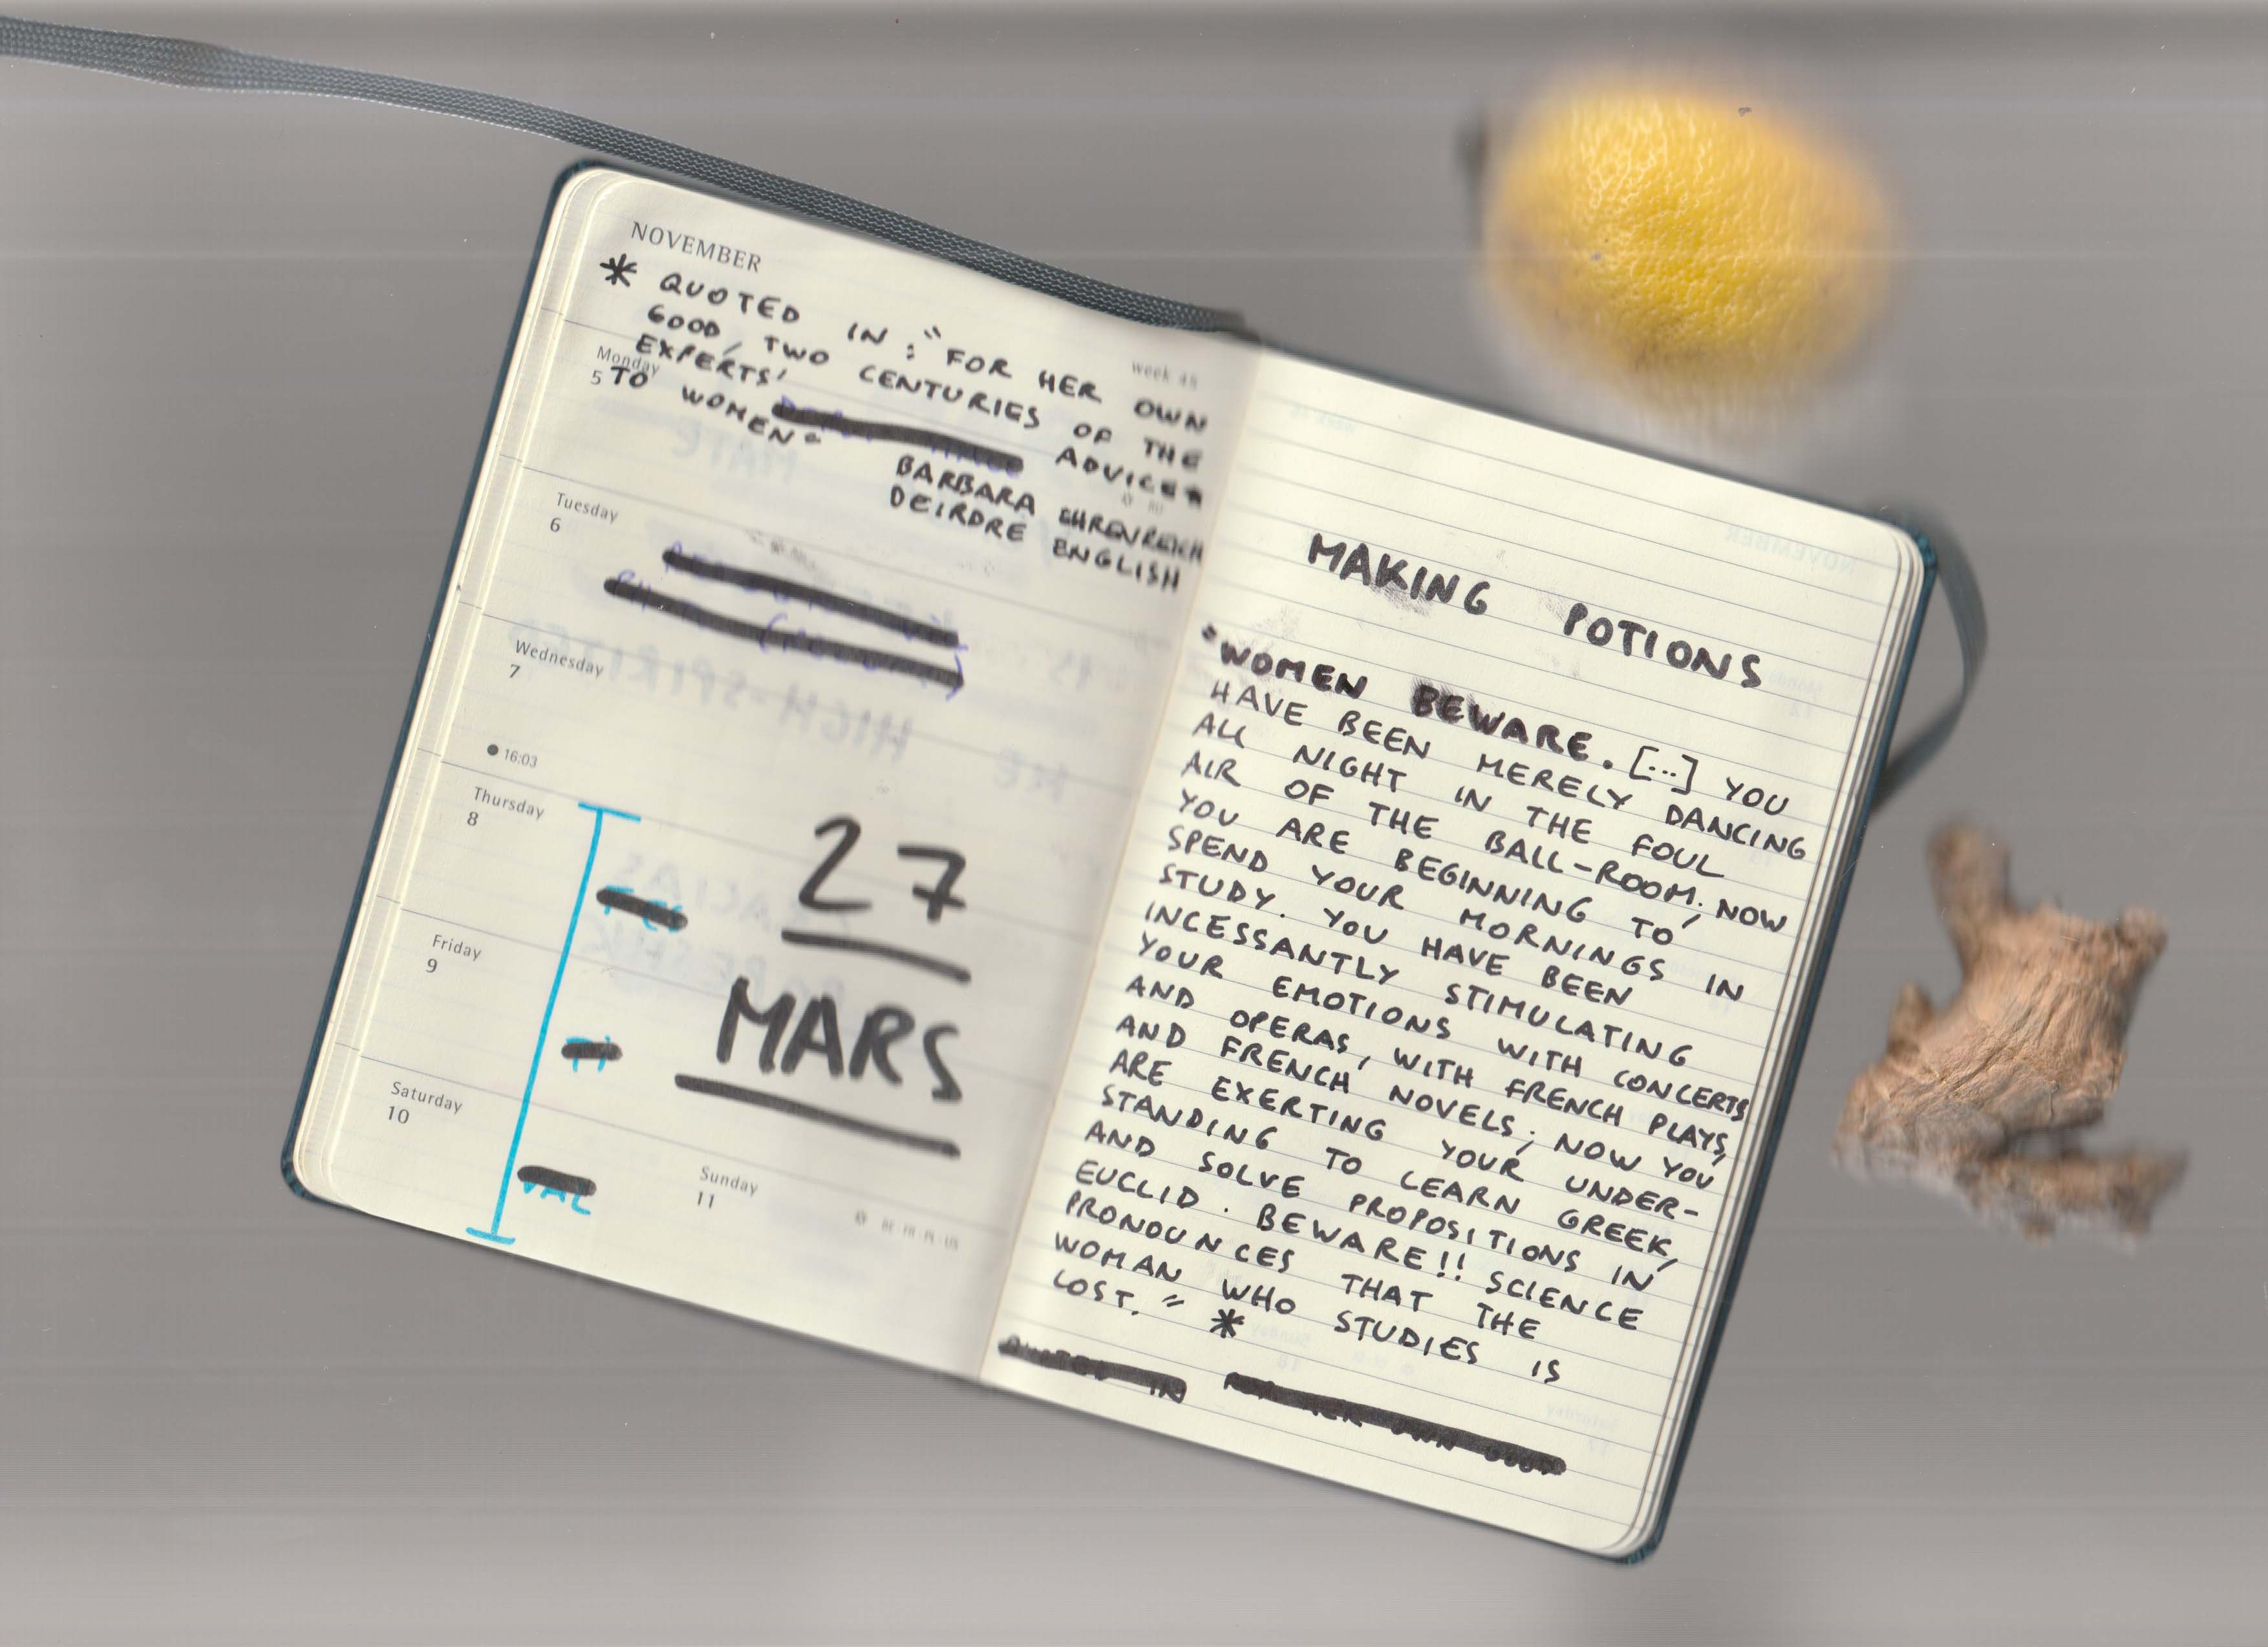 NOVEMBER
week 45
* QUOTED IN: "FOR HER OWN
GOOD, TWO CENTURIES OF THE
EXPERTS' ADVICE
TO WOMEN"
BARBARA EHRENREICH
DEIRDRE ENGLISH
Monday
5
Tuesday
6
Wednesday
7
16:03
Thursday
8
27
MARS
Friday
9
Saturday
10
Sunday
11
MAKING POTIONS
"WOMEN BEWARE. [...] YOU
HAVE BEEN MERELY DANCING
ALL NIGHT IN THE FOUL
AIR OF THE BALL-ROOM. NOW,
YOU ARE BEGINNING TO
SPEND YOUR MORNINGS IN
STUDY. YOU HAVE BEEN
INCESSANTLY STIMULATING
YOUR EMOTIONS WITH CONCERTS
AND OPERAS, WITH FRENCH PLAYS,
AND FRENCH NOVELS; NOW YOU
ARE EXERTING YOUR UNDER-
STANDING TO LEARN GREEK,
AND SOLVE PROPOSITIONS IN
EUCLID. BEWARE!! SCIENCE
PRONOUNCES THAT THE
WOMAN WHO STUDIES IS
LOST." *